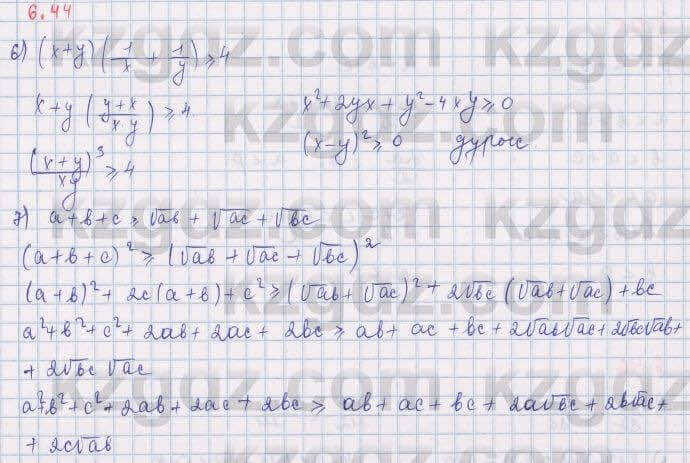 6.44
6) (x+y)(1/x + 1/y) ≥ 4
x+y ((y+x)/(xy)) ≥ 4
(x+y)^3/(xy) ≥ 4
x^2+2yx+y^2-4xy ≥ 0
(x-y)^2 ≥ 0 дұрыс
7) a+b+c ≥ √ab + √ac + √bc
(a+b+c)^2 ≥ (√ab + √ac + √bc)^2
(a+b)^2 + 2c(a+b) + c^2 ≥ (√ab + √ac)^2 + 2√bc (√ab+√ac) + bc
a^2+b^2+c^2 + 2ab + 2ac + 2bc ≥ ab + ac + bc + 2√ab√ac + 2√bc√ab +
+ 2√bc √ac
a^2+b^2+c^2 + 2ab + 2ac + 2bc ≥ ab + ac + bc + 2a√bc + 2b√ac +
+ 2c√ab
kzgdz.com